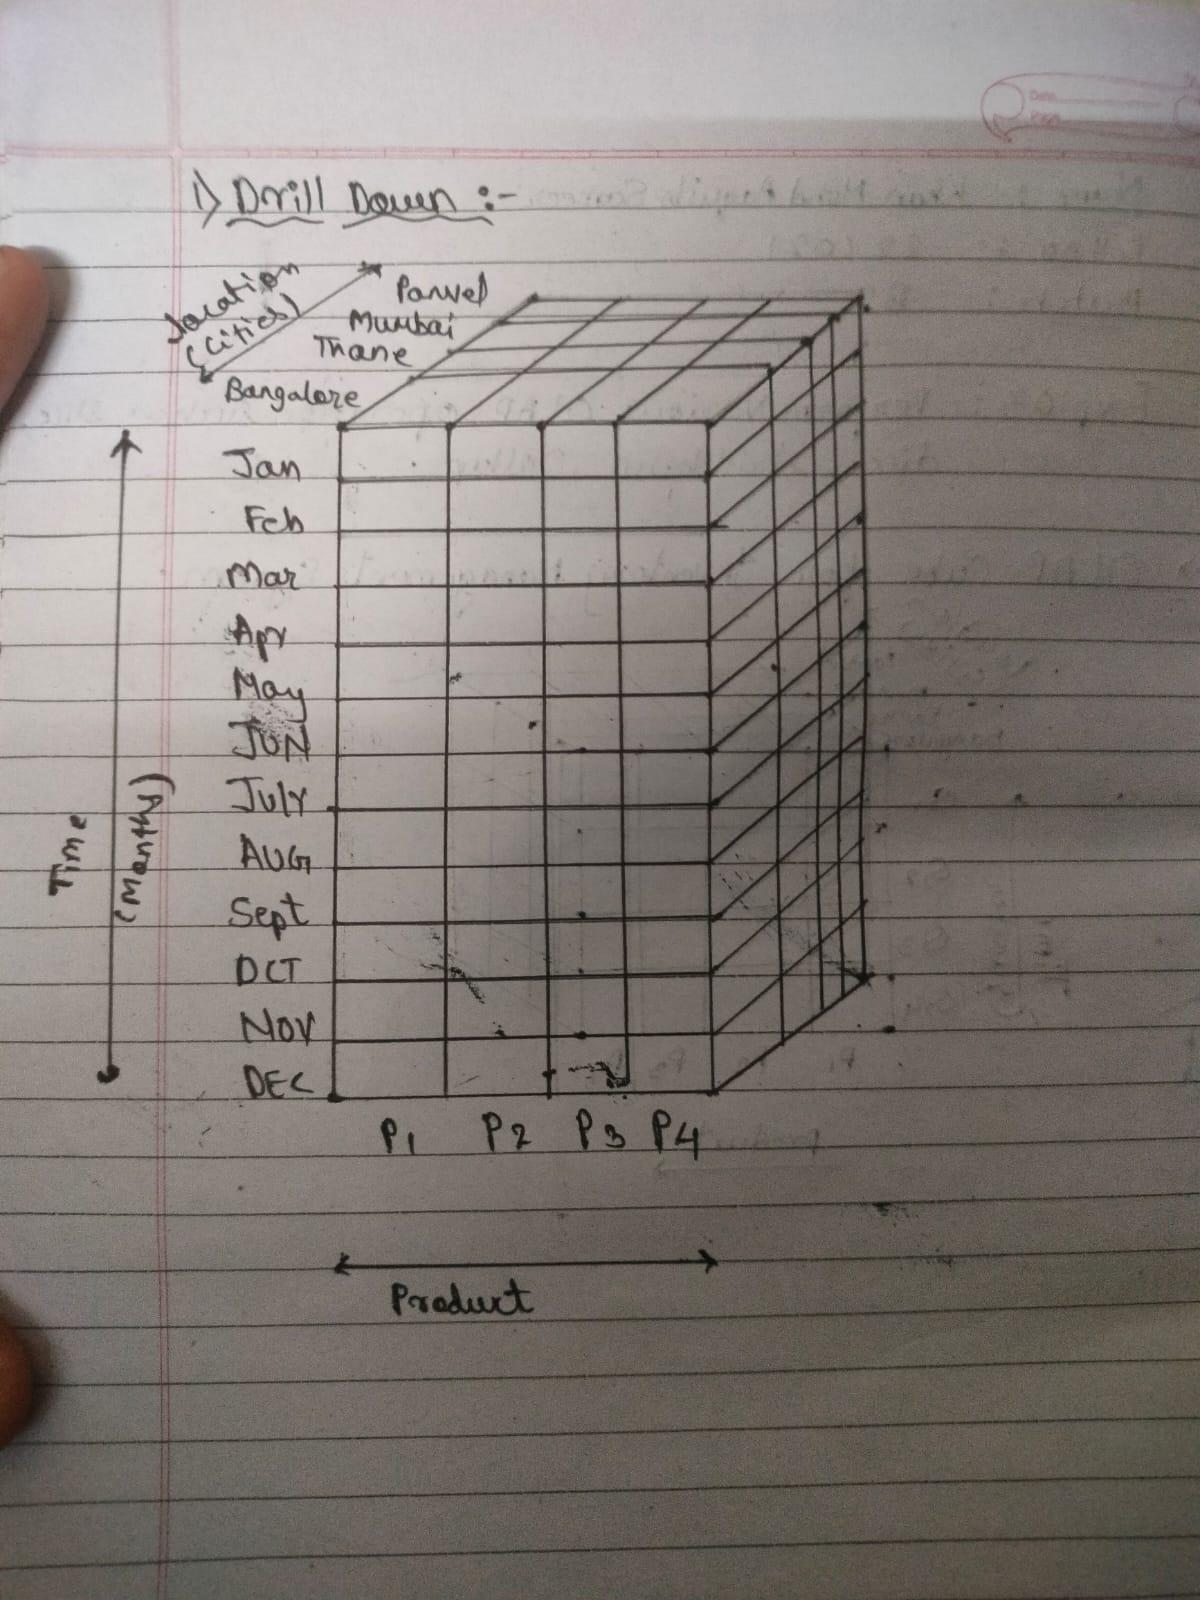 1) Drill Down :-
Location
(Cities)
Panvel
Mumbai
Thane
Bangalore
Jan
Feb
Mar
Apr
May
JUN
July
AUG
Sept
OCT
Nov
DEC
Time
(Month)
P1 P2 P3 P4
Product